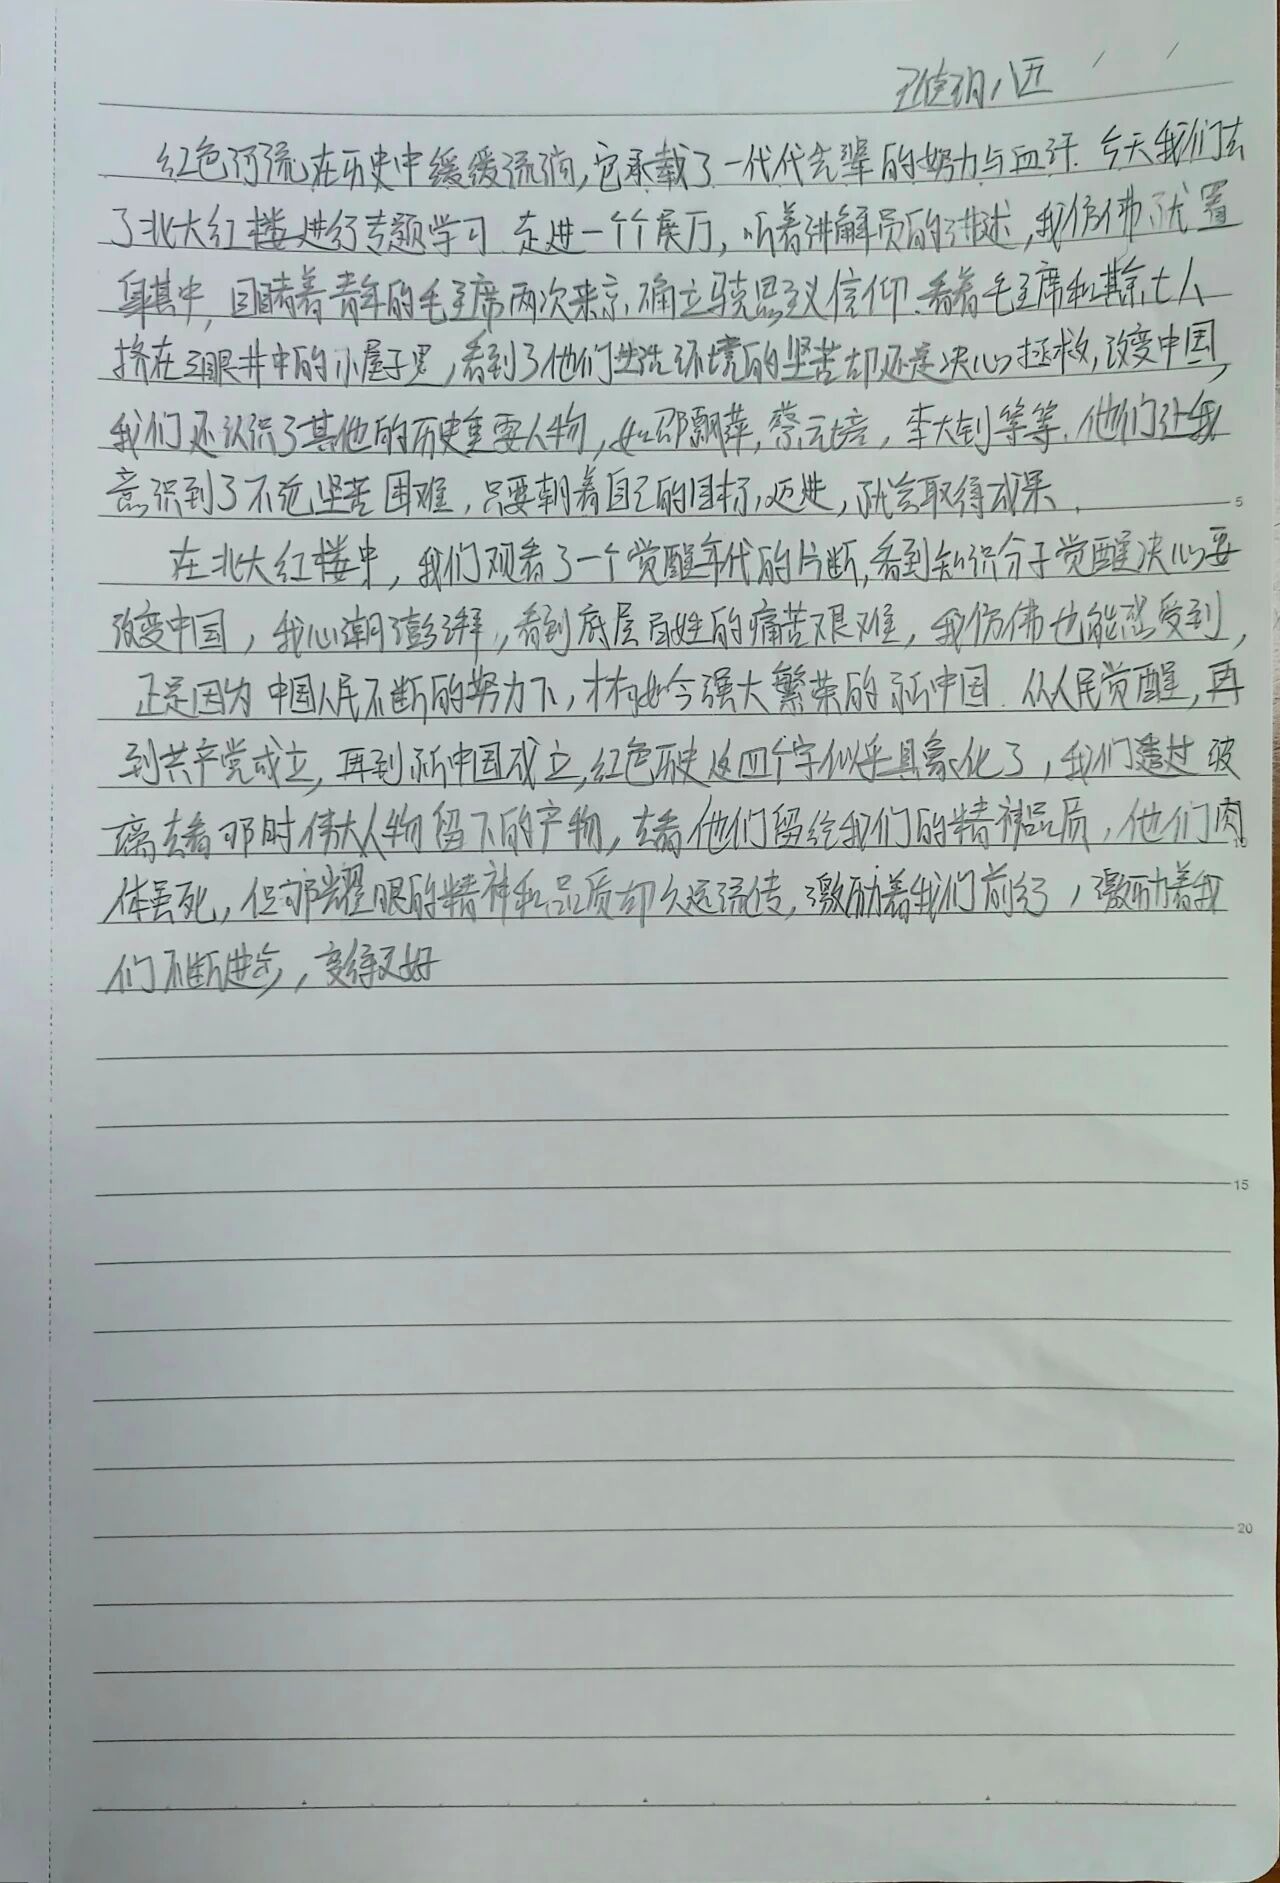 红色河流在历史中缓缓流淌,它承载了一代代先辈的努力与血汗.今天我们去
了北大红楼进行专题学习.走进一个个展厅,听着讲解员的讲述,我仿佛就置
身其中,目睹着青年的毛主席两次来京,确立马克思主义信仰.看着毛主席和其余七人
挤在三眼井中的小屋子里,看到了他们生活环境的坚苦却还是决心拯救,改变中国,
我们还认识了其他的历史重要人物,如邵飘萍,蔡元培,李大钊等等.他们让我
意识到了不论坚苦困难,只要朝着自己的目标,迈进,就会取得成果.
在北大红楼中,我们观看了一个觉醒年代的片断,看到知识分子觉醒决心要
改变中国,我心潮澎湃,看到底层百姓的痛苦艰难,我仿佛也能感受到,
正是因为中国人民不断的努力下,才有如今强大繁荣的新中国.从人民觉醒,再
到共产党成立,再到新中国成立,红色历史这四个字似乎具象化了,我们透过玻
璃去看那时伟大人物留下的产物,去看他们留给我们的精神品质,他们肉
体虽死,但那耀眼的精神和品质却久远流传,激励着我们前行,激励着我
们不断进步,变得更好
5
10
15
20